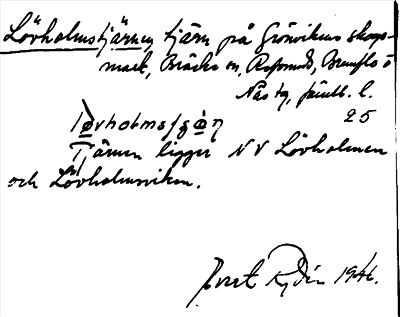 Lövholmstjärnen tjärn på Grönvikens skogs-
mark, Bräcke sn, Refsunds, Brunflo o
Näs tg, Jämtl. l.
25
Tjärnen ligger NV Lövholmen
och Lövholmsviken.
Rydén 1946.